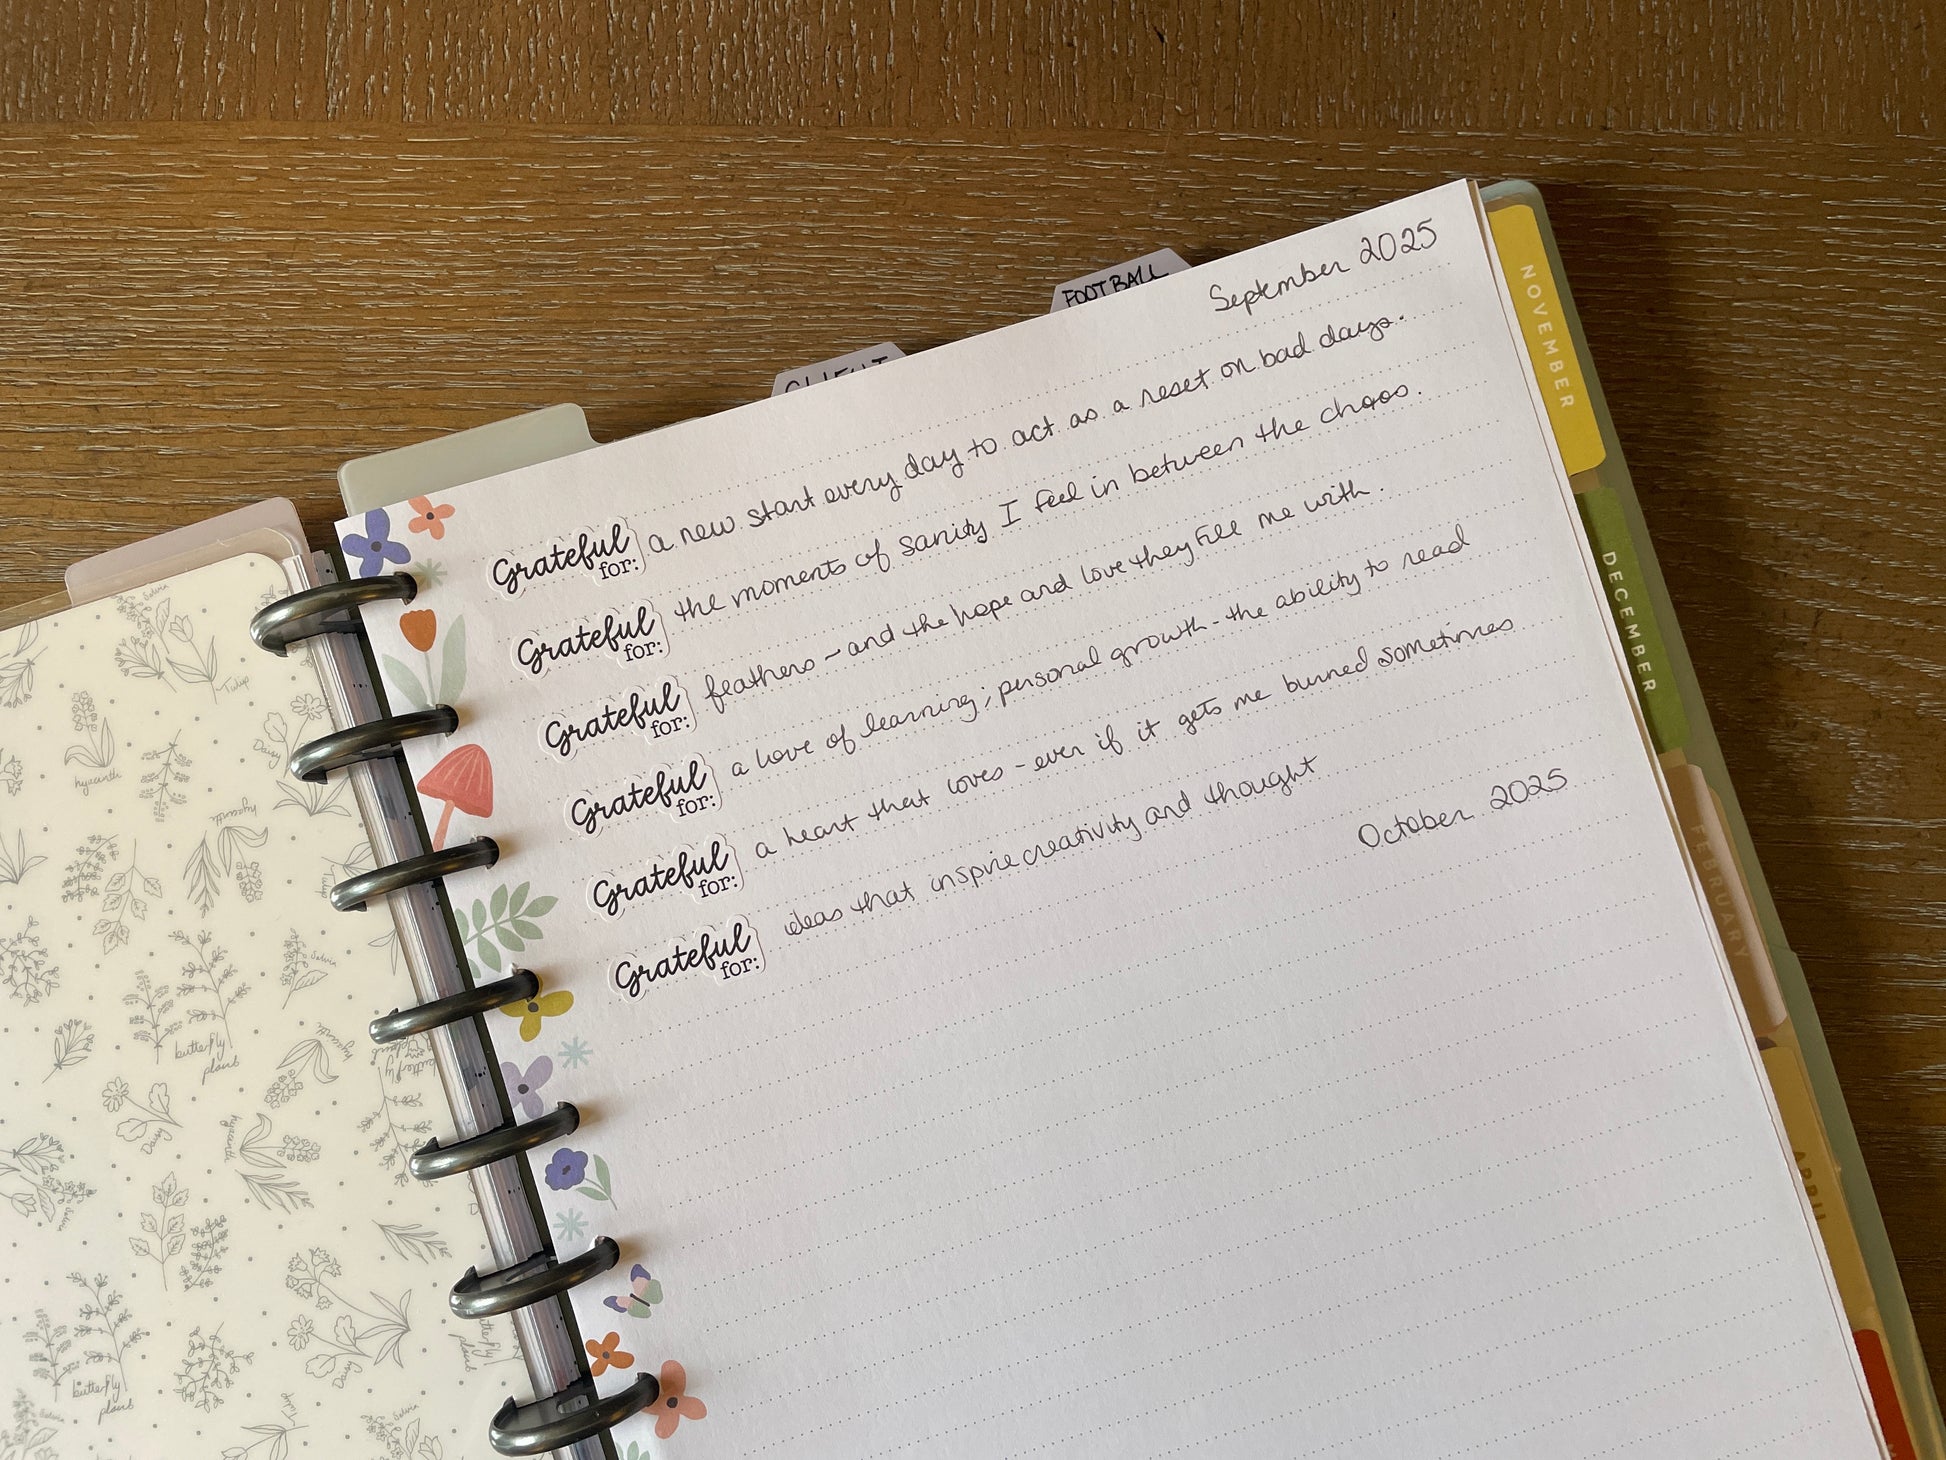 FOOTBALL
CLIENT
September 2025
Grateful for: a new start every day to act as a reset on bad days.
Grateful for: the moments of sanity I feel in between the chaos.
Grateful for: feathers - and the hope and love they fill me with.
Grateful for: a love of learning, personal growth - the ability to read
Grateful for: a heart that loves - even if it gets me burned sometimes
Grateful for: ideas that inspire creativity and thought
October 2025
NOVEMBER
DECEMBER
FEBRUARY
APRIL
Salvia
Tulip
Daisy
hyacinth
hyacinth
Tulip
Salvia
butterfly plant
hyacinth
butterfly plant
Daisy
hyacinth
Salvia
butterfly plant
Daisy
butterfly plant
Tulip
Salvia